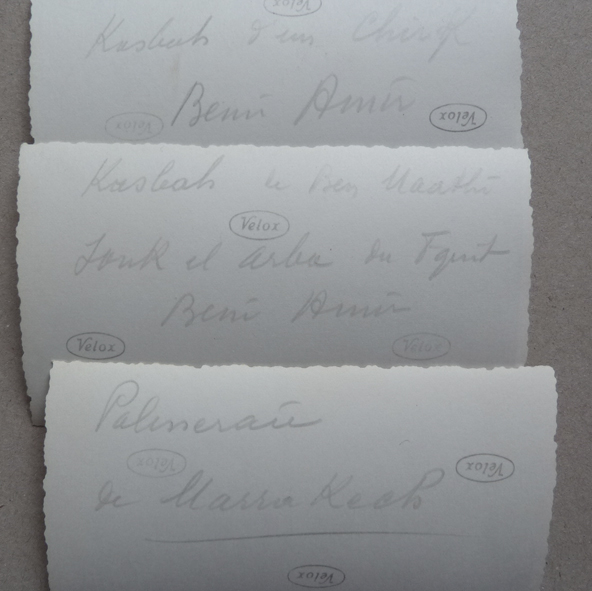 Velox
Kasbah d'un Chirk
Beni Amir
Velox
Velox
Kasbah de Ben
Velox
Souk el arba du Fquit
Beni Amir
Velox
Velox
Palmeraie
Velox
Velox
de Marrakech
Velox